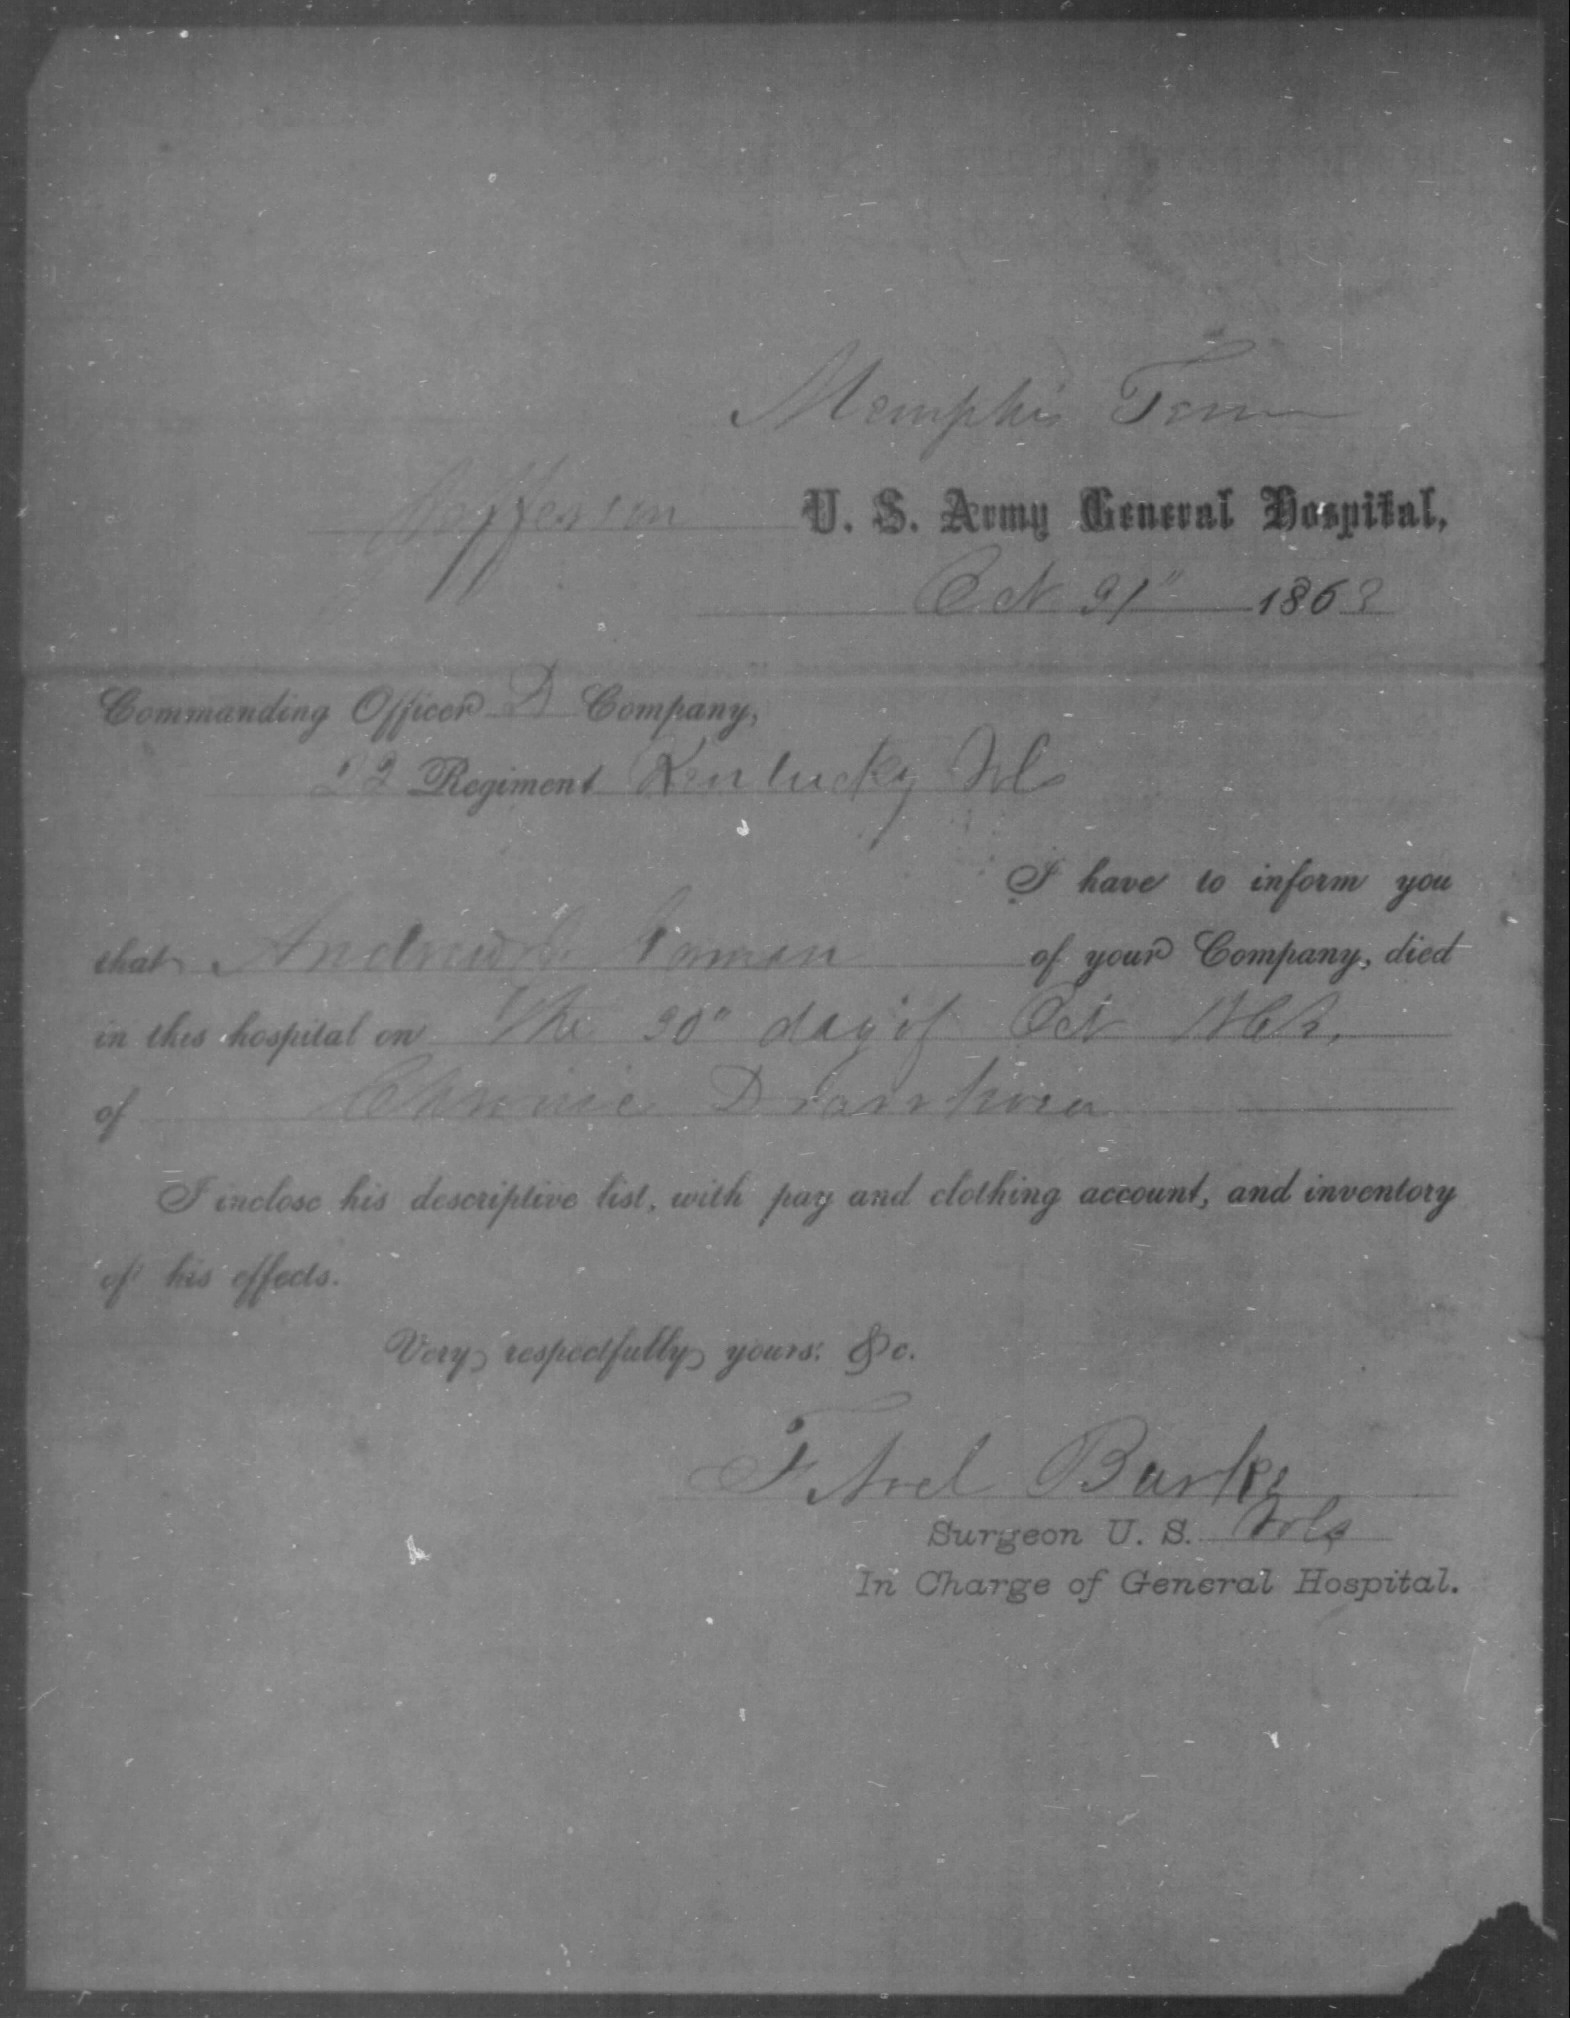 Memphis Tenn
Jefferson U. S. Army General Hospital,
Oct 31" 1863
Commanding Officer D Company,
22 Regiment Kentucky Vols
I have to inform you
that Andrew of your Company, died
in this hospital on the 30" day of Oct 1863,
of Chronic Diarrhoea
I inclose his descriptive list, with pay and clothing account, and inventory
of his effects.
Very respectfully yours, &c.
Burke
Surgeon U. S. Vols
In Charge of General Hospital.